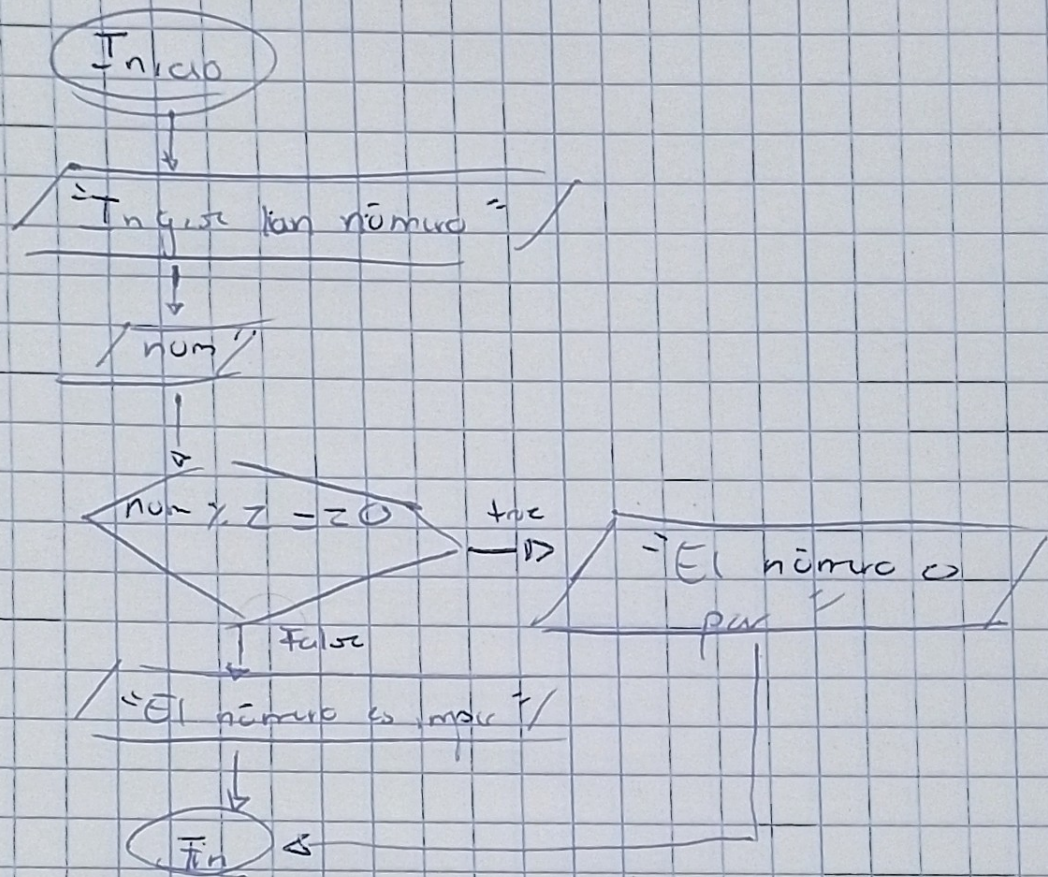 Inicio
"Ingrese un número"
num
num % 2 == 0
true
"El número es
par"
False
"El número es impar"
Fin